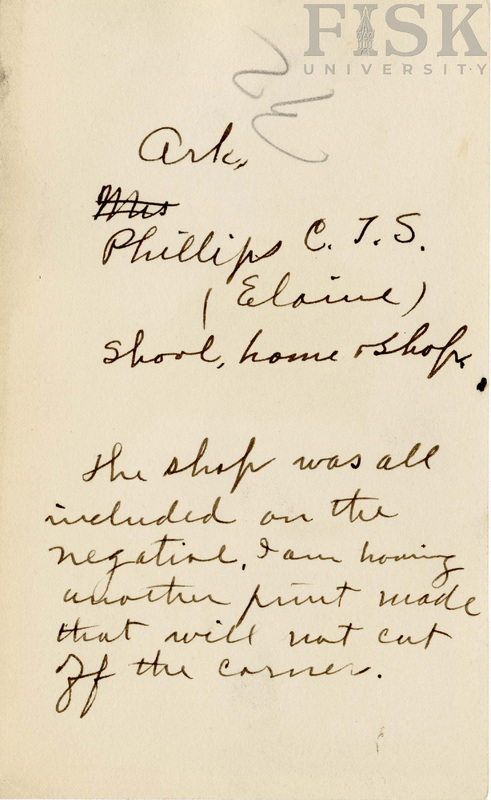 FISK
UNIVERSITY
Ark.
Mrs
Phillips C. T. S.
(Elaine)
Shool, home & shop.
The shop was all
included on the
negative. I am having
another print made
that will not cut
off the corner.